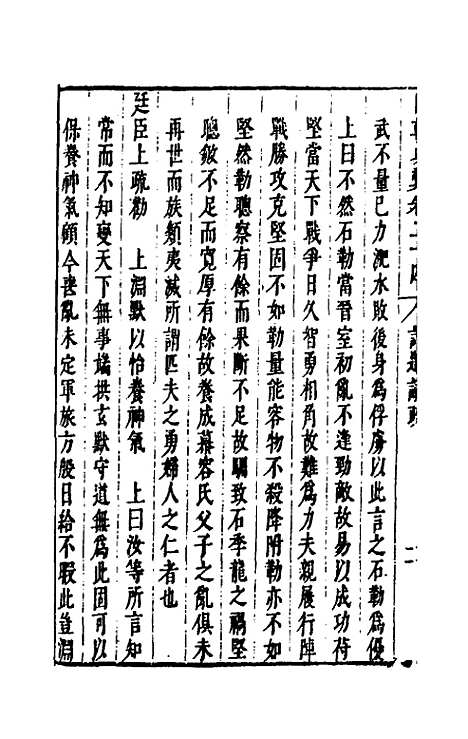 武不量已力淝水敗後身為俘虜以此言之石勒為優
上曰不然石勒當晉室初亂不逢勁敵故易以成功苻
堅當天下戰爭日久智勇相角故難為力夫親履行陣
戰勝攻克堅固不如勒量能容物不殺降附勒亦不如
堅然勒聰察有餘而果斷不足故馴致石季龍之禍堅
聰敏不足而寬厚有餘故養成慕容氏父子之亂俱未
再世而族類夷滅所謂匹夫之勇婦人之仁者也
廷臣上疏勸 上淵默以怡養神氣 上曰汝等所言知
常而不知變天下無事端拱玄默守道無為此固可以
保養神氣顧今喪亂未定軍旅方殷日給不暇此豈淵